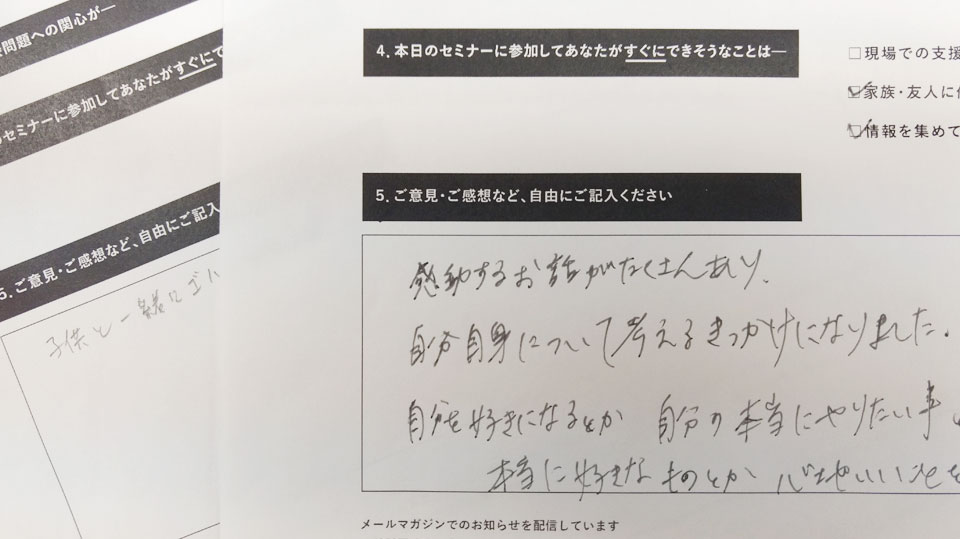 問題への関心が―
のセミナーに参加してあなたがすぐにで
5. ご意見・ご感想など、自由にご記入
子供と一緒にゴ
4. 本日のセミナーに参加してあなたがすぐにできそうなことは―
□現場での支援
☑家族・友人に
☑情報を集めて
5. ご意見・ご感想など、自由にご記入ください
感動するお話がたくさんあり、
自分自身について考えるきっかけになりました。
自分を好きになるとか 自分の本当にやりたい事
本当に好きなものとか 心地いいことを
メールマガジンでのお知らせを配信しています